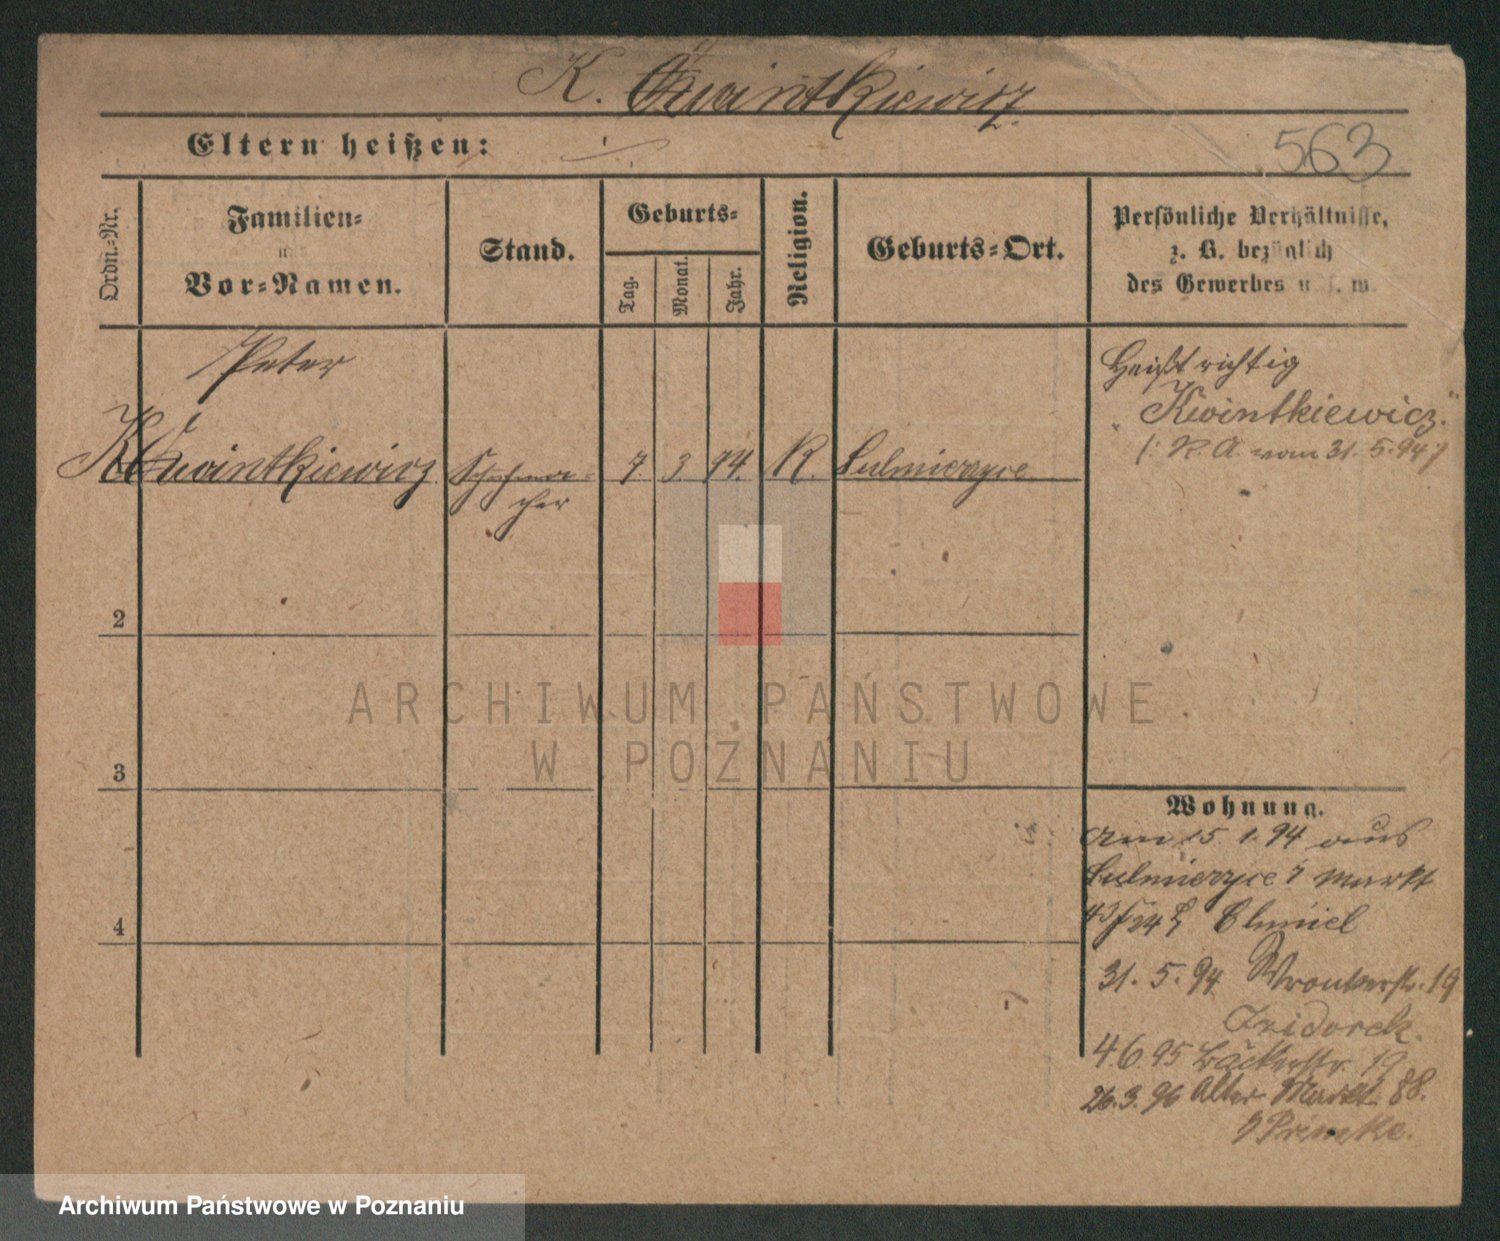 K. Kwintkiewicz.
Eltern heißen: ·/.
563
Ordn.-Nr.
Familien-
Vor-Namen.
Stand.
Geburts-
Tag.
Monat.
Jahr.
Religion.
Geburts-Ort.
Persönliche Verhältnisse,
z. B. bezüglich
des Gewerbes u. s. w.
Peter
Kwintkiewicz
Schuhma-
cher
7. 3. 74. K. Sulmierzyce
Heißt richtig
"Kwintkiewicz."
(: R. A. vom 31. 5. 94 :)
2
3
4
ARCHIWUM PAŃSTWOWE
W POZNANIU
Wohnung.
Am 15. 1. 94 aus
Sulmierzyce Markt
Chmiel
31. 5. 94 Wronkerstr. 19
Izidorek.
4.6.95 Bäckerstr. 19
26.3.96 Alter Markt 88.
Archiwum Państwowe w Poznaniu